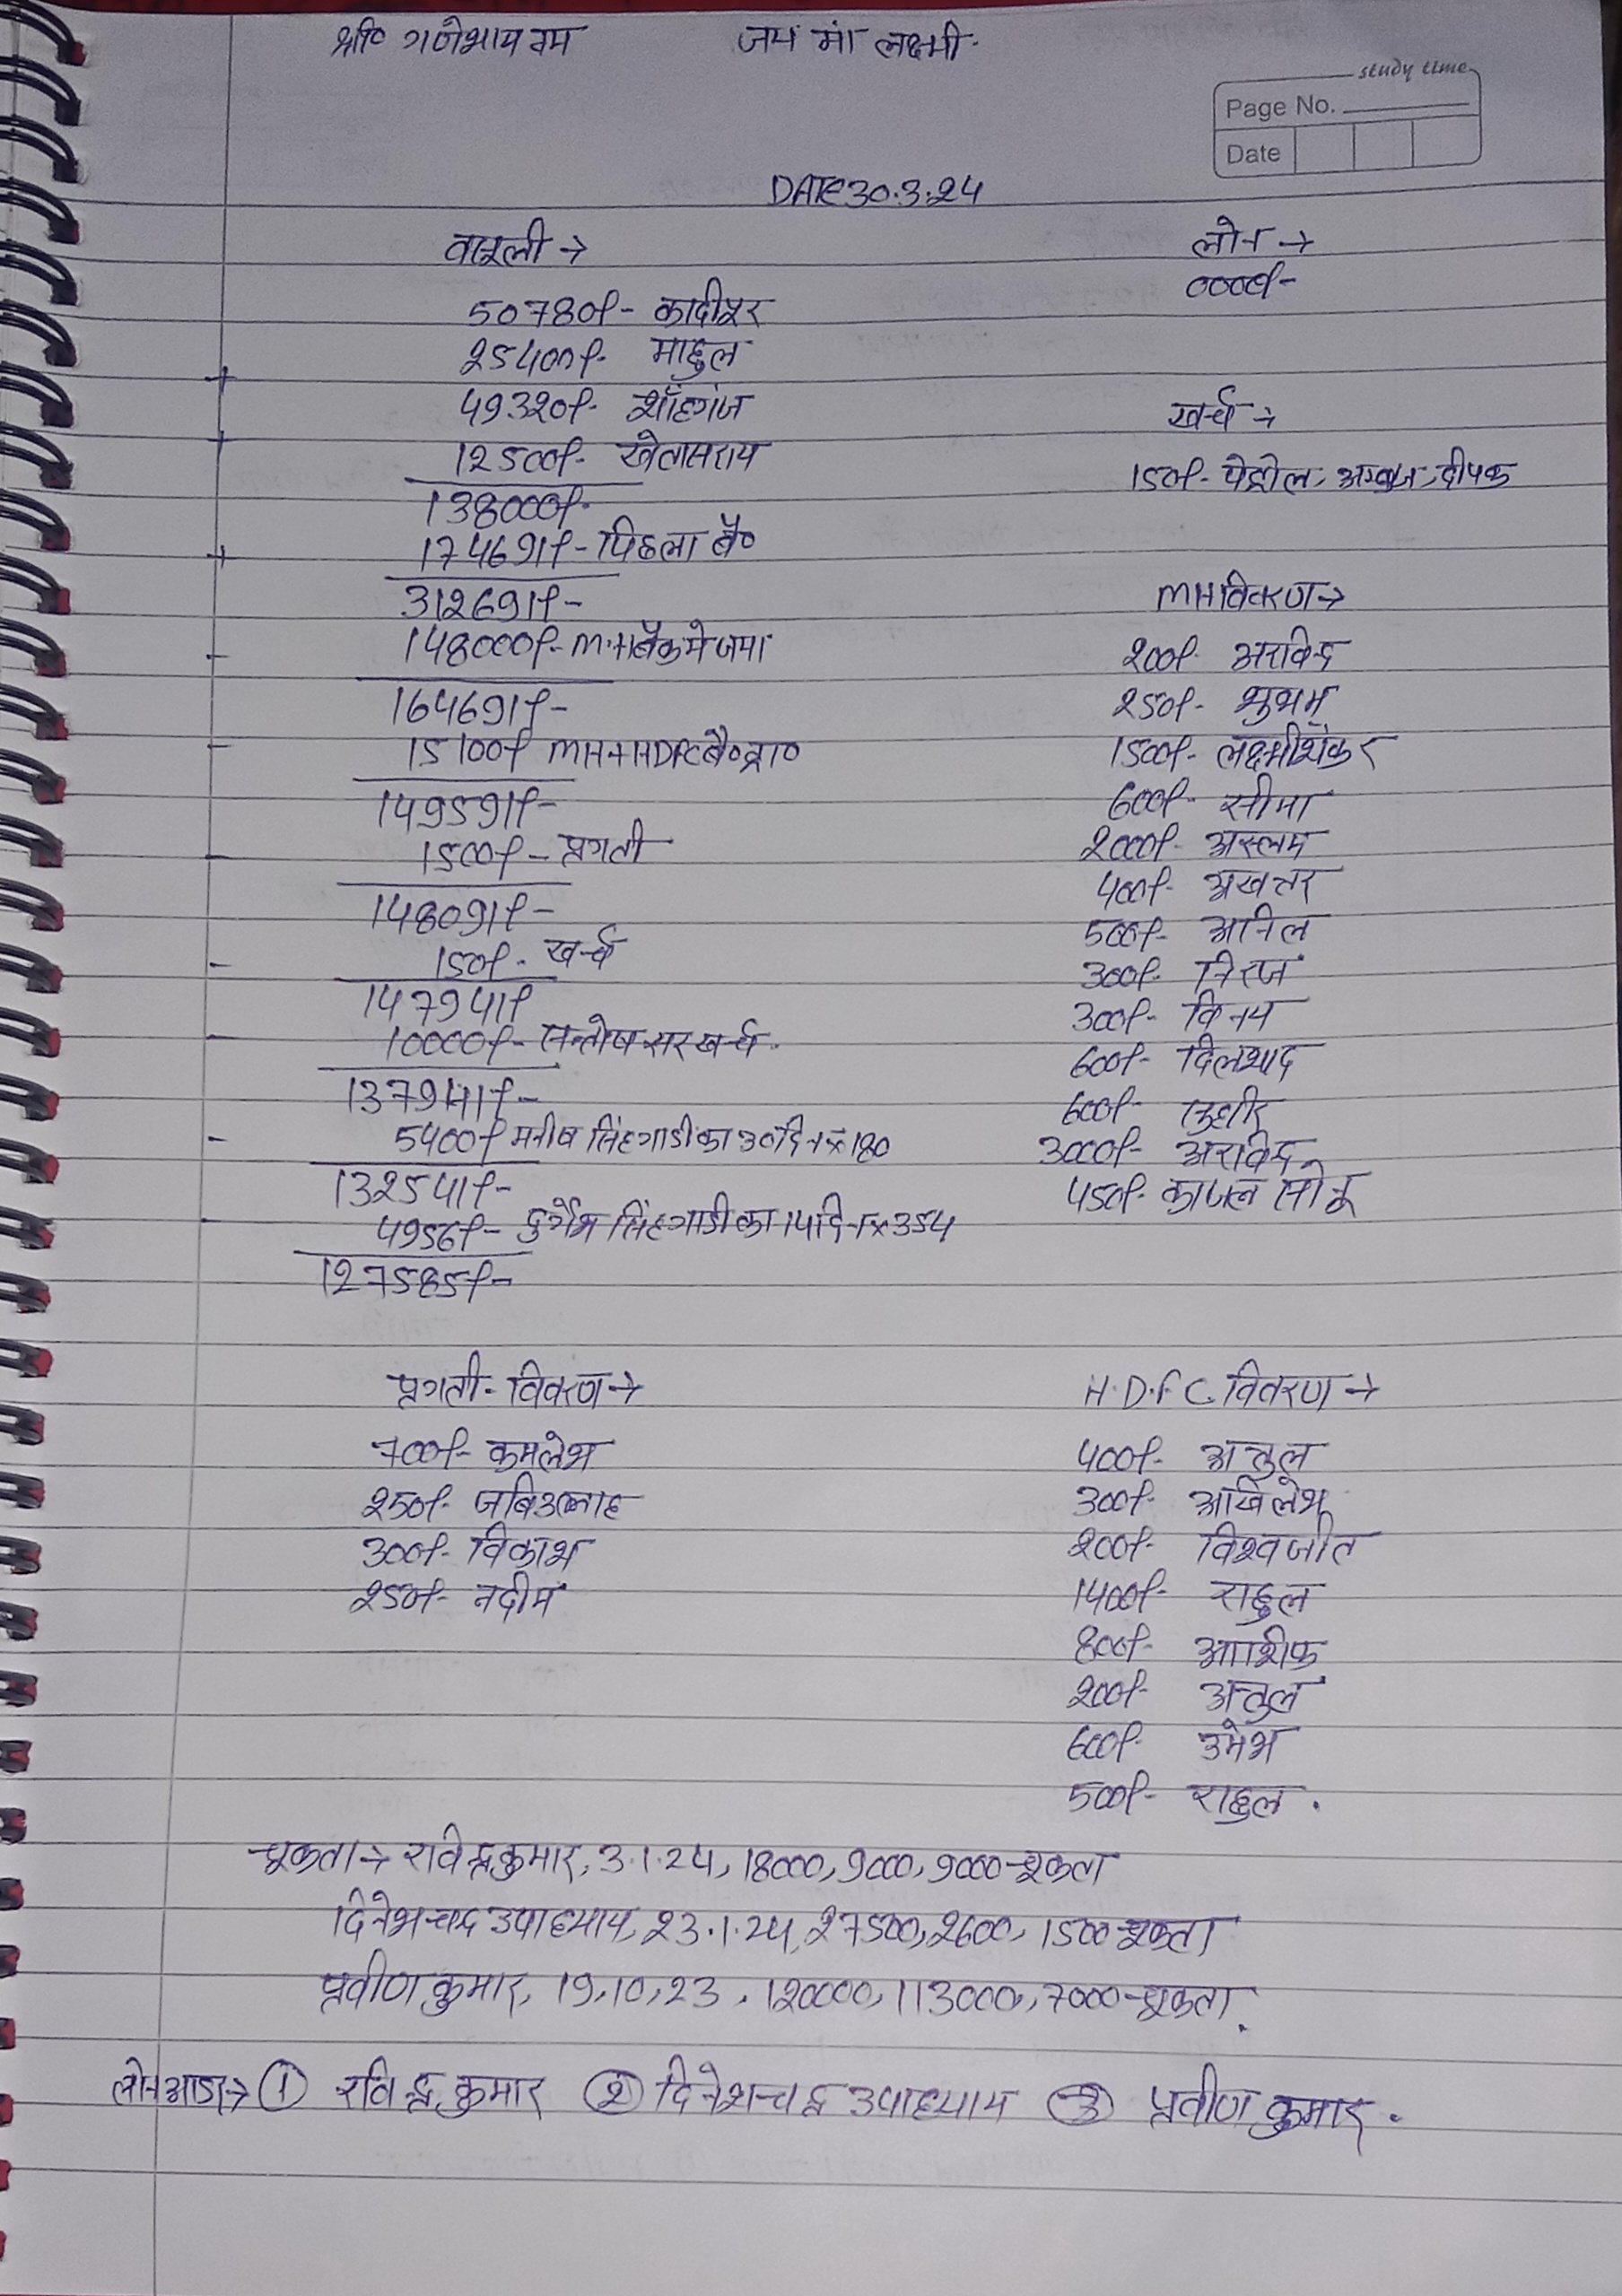 श्री० गणेशाय नम जय मां लक्ष्मी.
study time
Page No.
Date
DATE 30.3.24
वासूली →
50780/- कादीपुर
25400/- माहुल
49320/- शाँहगंज
12500/- खेतासराय
138000/-
174691/- पिछला बै०
312691/-
148000/- M.H बैंक मे जमा
164691/-
15100/- MH+HDFC बै० ब्रा०
149591/-
1500/- प्रगती
148091/-
150/- खर्च
147941/-
10000/- सन्तोष सर खर्च.
137941/-
5400/- मनीष सिंह गाडी का 30 दिन x 180
132541/-
4956/- दुर्गेश सिंह गाडी का 14 दिन x 354
127585/-
लोन →
0000/-
खर्च →
150/- पेट्रोल, अम्बुज, दीपक
MH विवरण →
200/- अरविन्द
250/- शुभम
1500/- लक्ष्मीशंकर
600/- सीमा
2000/- अस्लम
400/- अखतर
500/- अनिल
300/- निरज
300/- विनय
600/- दिलशाद
600/- सुधीर
3000/- अरविन्द
450/- काजल
प्रगती - विवरण →
700/- कमलेश
250/- जबिउल्लाह
300/- विकाश
250/- नदीम
H.D.F.C. विवरण →
400/- अतुल
300/- अखिलेश
200/- विश्वजीत
1400/- राहुल
800/- आशिक
200/- अतुल
600/- उमेश
500/- राहुल.
चूकता → रविन्द्र कुमार, 3.1.24, 18000, 9000, 9000 चूकता
दिनेश चन्द्र उपाध्याय, 23.1.24, 27500, 2600, 1500 चूकता
प्रवीण कुमार, 19,10,23, 120000, 113000, 7000 चूकता.
लोन आडर → ① रविन्द्र कुमार ② दिनेश चन्द्र उपाध्याय ③ प्रवीण कुमार.